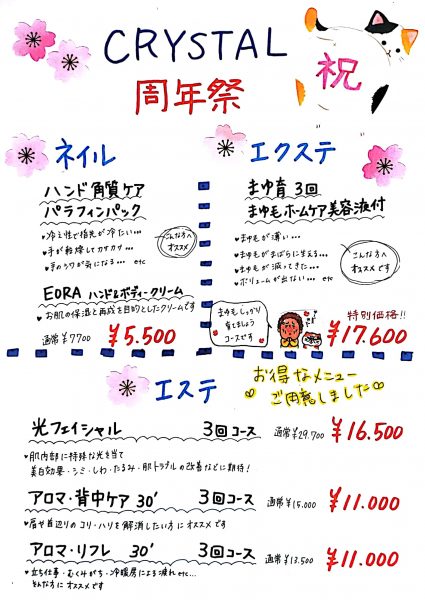 CRYSTAL
周年祭
祝
ネイル
ハンド角質ケア
パラフィンパック
・冷え性で指先が冷たい…
・手が乾燥してカサカサ…
・手のシワが気になる… etc
こんな方へ
オススメ
EORA ハンド&ボディークリーム
・お肌の保湿と再成を目的としたクリームです
通常¥7700 ¥5.500
エクステ
まゆ育 3回
まゆ毛ホームケア美容液付
♥まゆ毛が薄い…
♥まゆ毛がまばらに生える…
♥まゆ毛が減ってきた…
♥ボリュームが出ない… etc
こんな方へ
オススメです
まゆ毛しっかり
育てましょう
コースです
特別価格!!
¥17.600
エステ
お得なメニュー
ご用意しました
光フェイシャル 3回コース 通常¥29.700 ¥16.500
・肌内部に特殊な光を当て
美白効果・シミ・しわ・たるみ・肌トラブルの改善などに期待!
アロマ・背中ケア 30' 3回コース 通常¥15.000 ¥11.000
・肩や首辺りのコリ・ハリを解消したい方にオススメです
アロマ・リフレ 30' 3回コース 通常¥13.500 ¥11.000
・立ち仕事・むくみがち・冷暖房による疲れ etc…
そんな方にオススメです